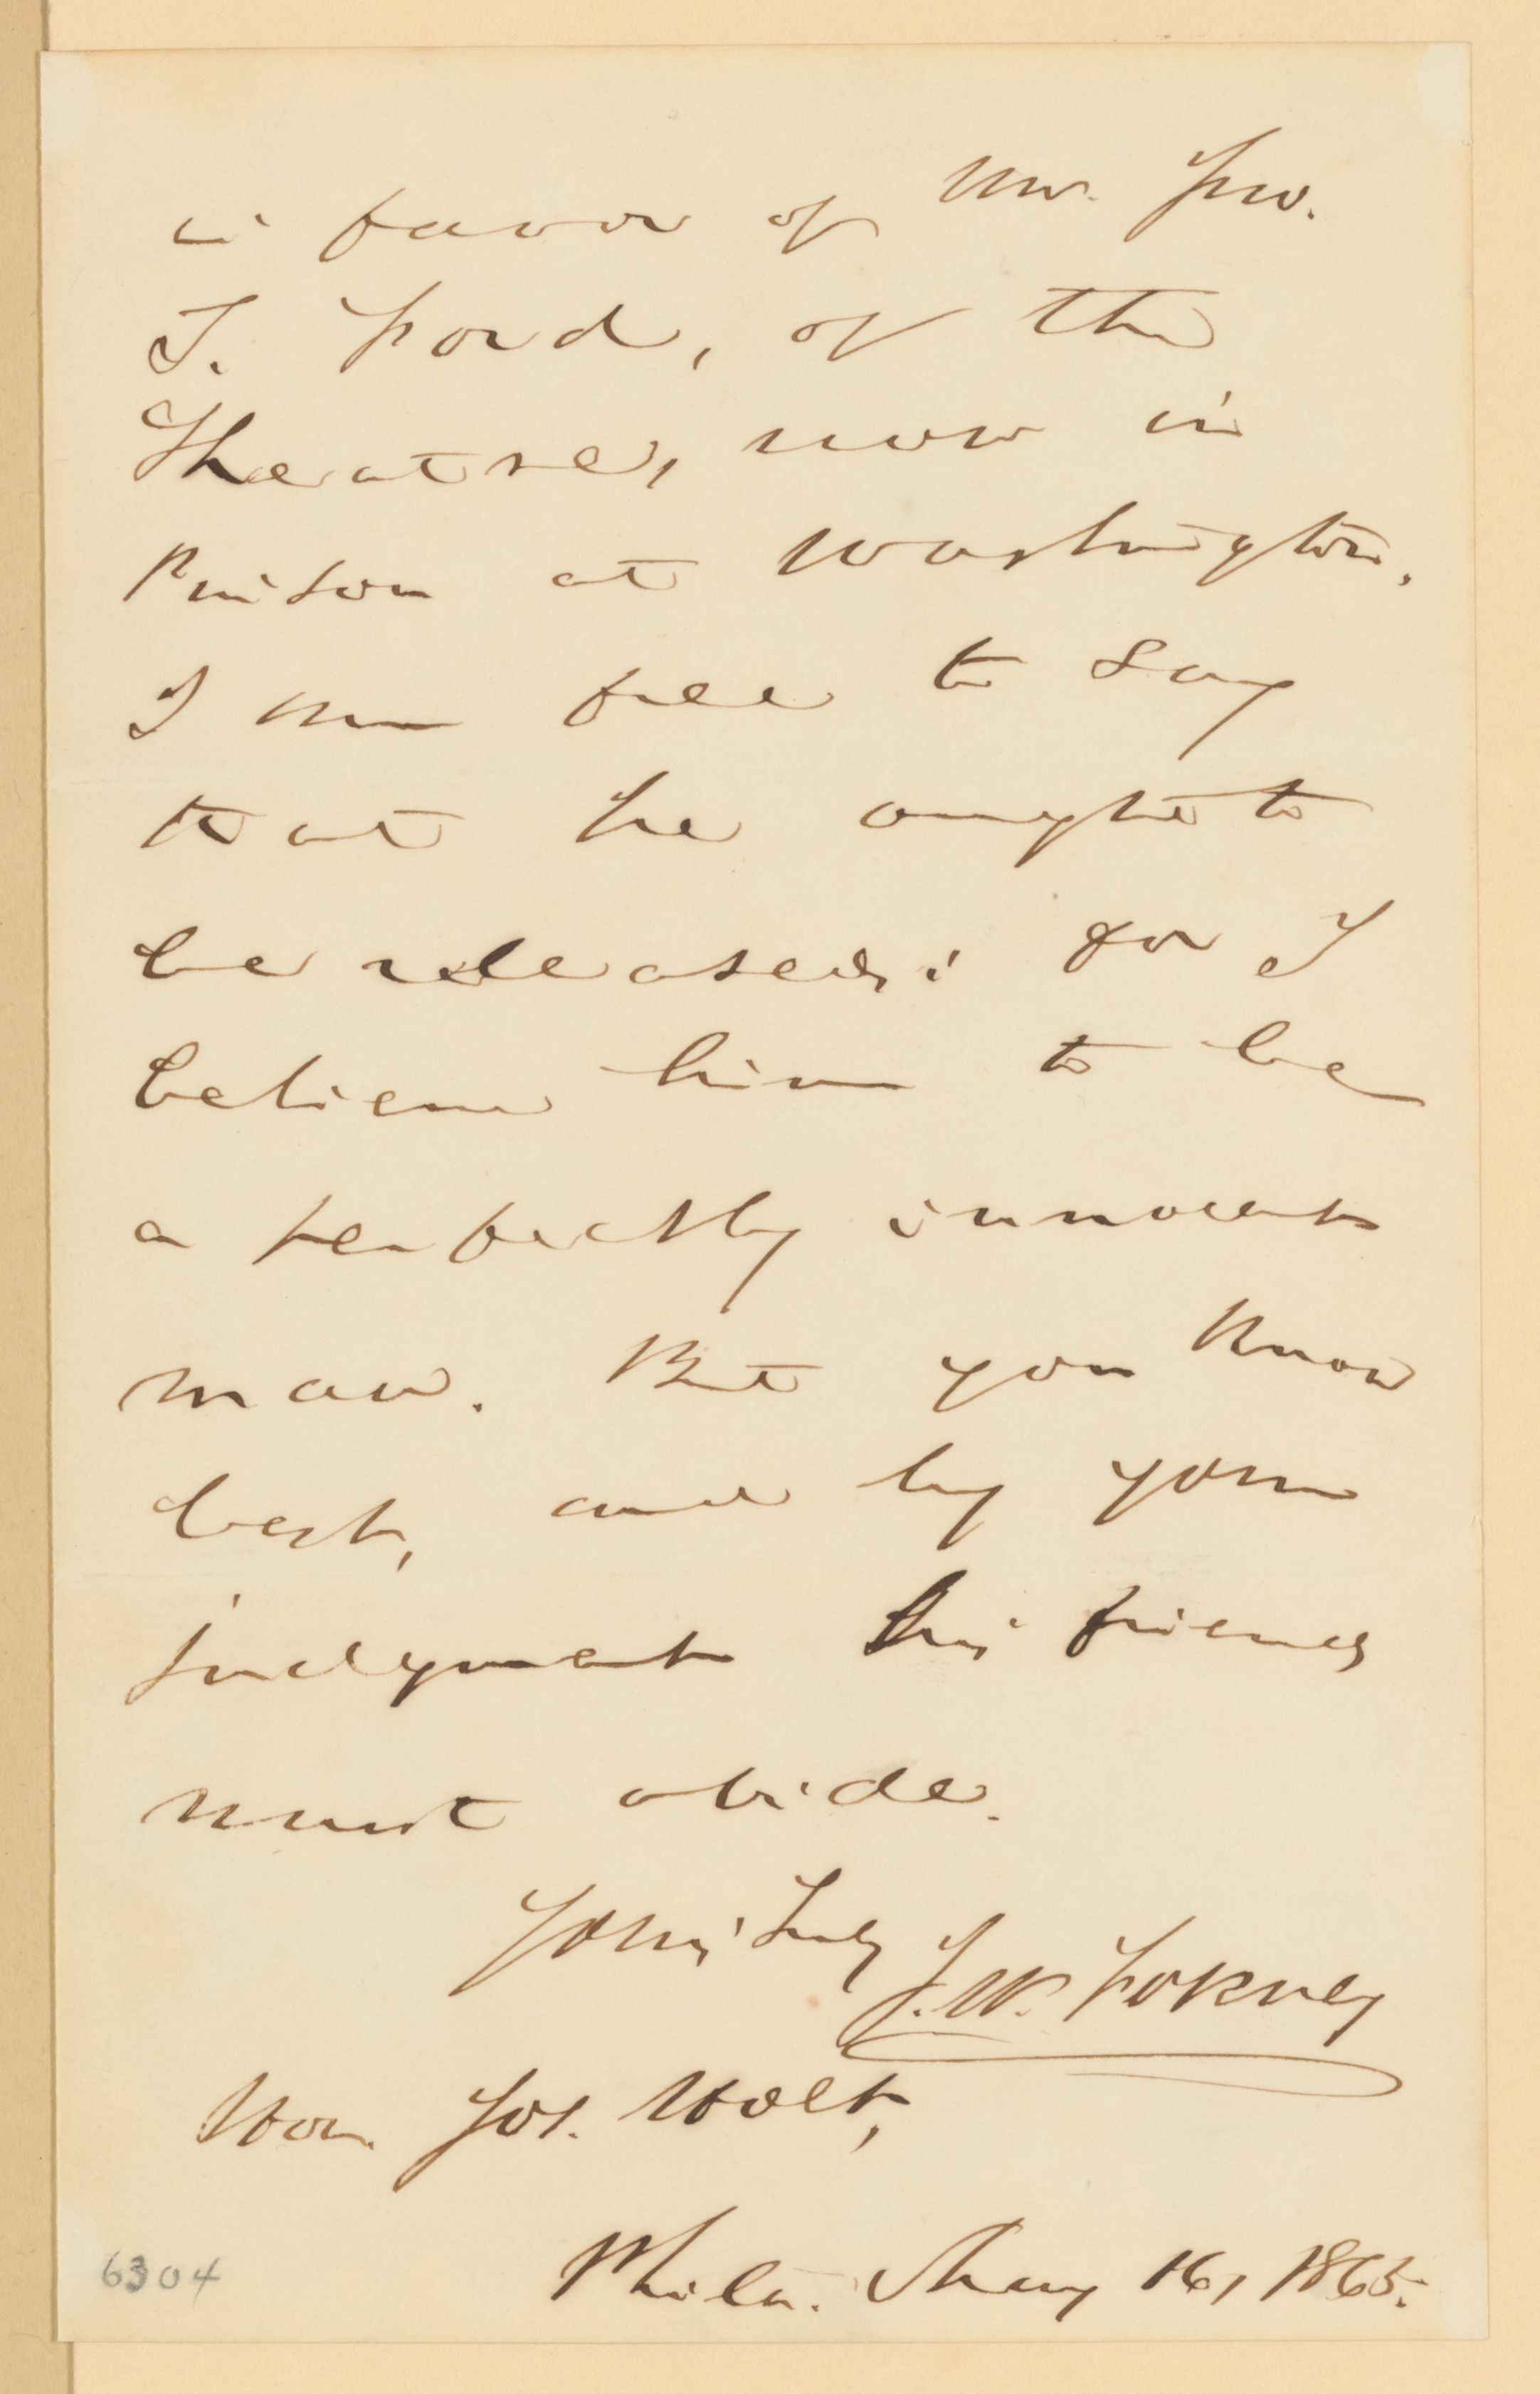 in favor of Mr. Jno.
T. Ford, of the
Theatre, now in
Prison at Washington.
I am free to say
that he ought to
be released: for I
believe him to be
a perfectly innocent
man. But you know
best, and by your
judgment his friends
must abide.
Yours truly
J. W. Forney
Hon. Jos. Holt,
Phila. May 16, 1865.
6304